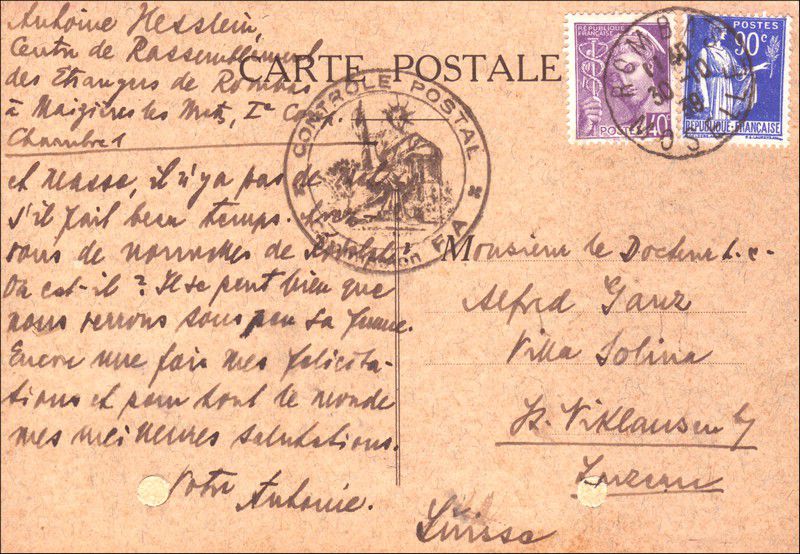 Antoine Hesslein,
Centre de Rassemblement
des Etrangers de Rombas
à Maizières les Metz, Ie Comp.
Chambre 1
CARTE POSTALE
CONTROLE POSTAL
Commission FA
RÉPUBLIQUE FRANÇAISE
POSTES 40c
POSTES
90c
RÉPUBLIQUE-FRANÇAISE
ROMBAS
30 -10
39
MOSELLE
et Masse, il n'y a pas de
s'il fait beau temps. Avez-
vous de nouvelles de
Où est-il? Il se peut bien que
nous verrons sous peu sa femme.
Encore une fois mes félicita-
tions et pour tout le monde
mes meilleures salutations.
Votre
Antoine.
Monsieur le Docteur
Alfred Ganz
Villa Solina
St. Niklausen b/
Luzern
Suisse